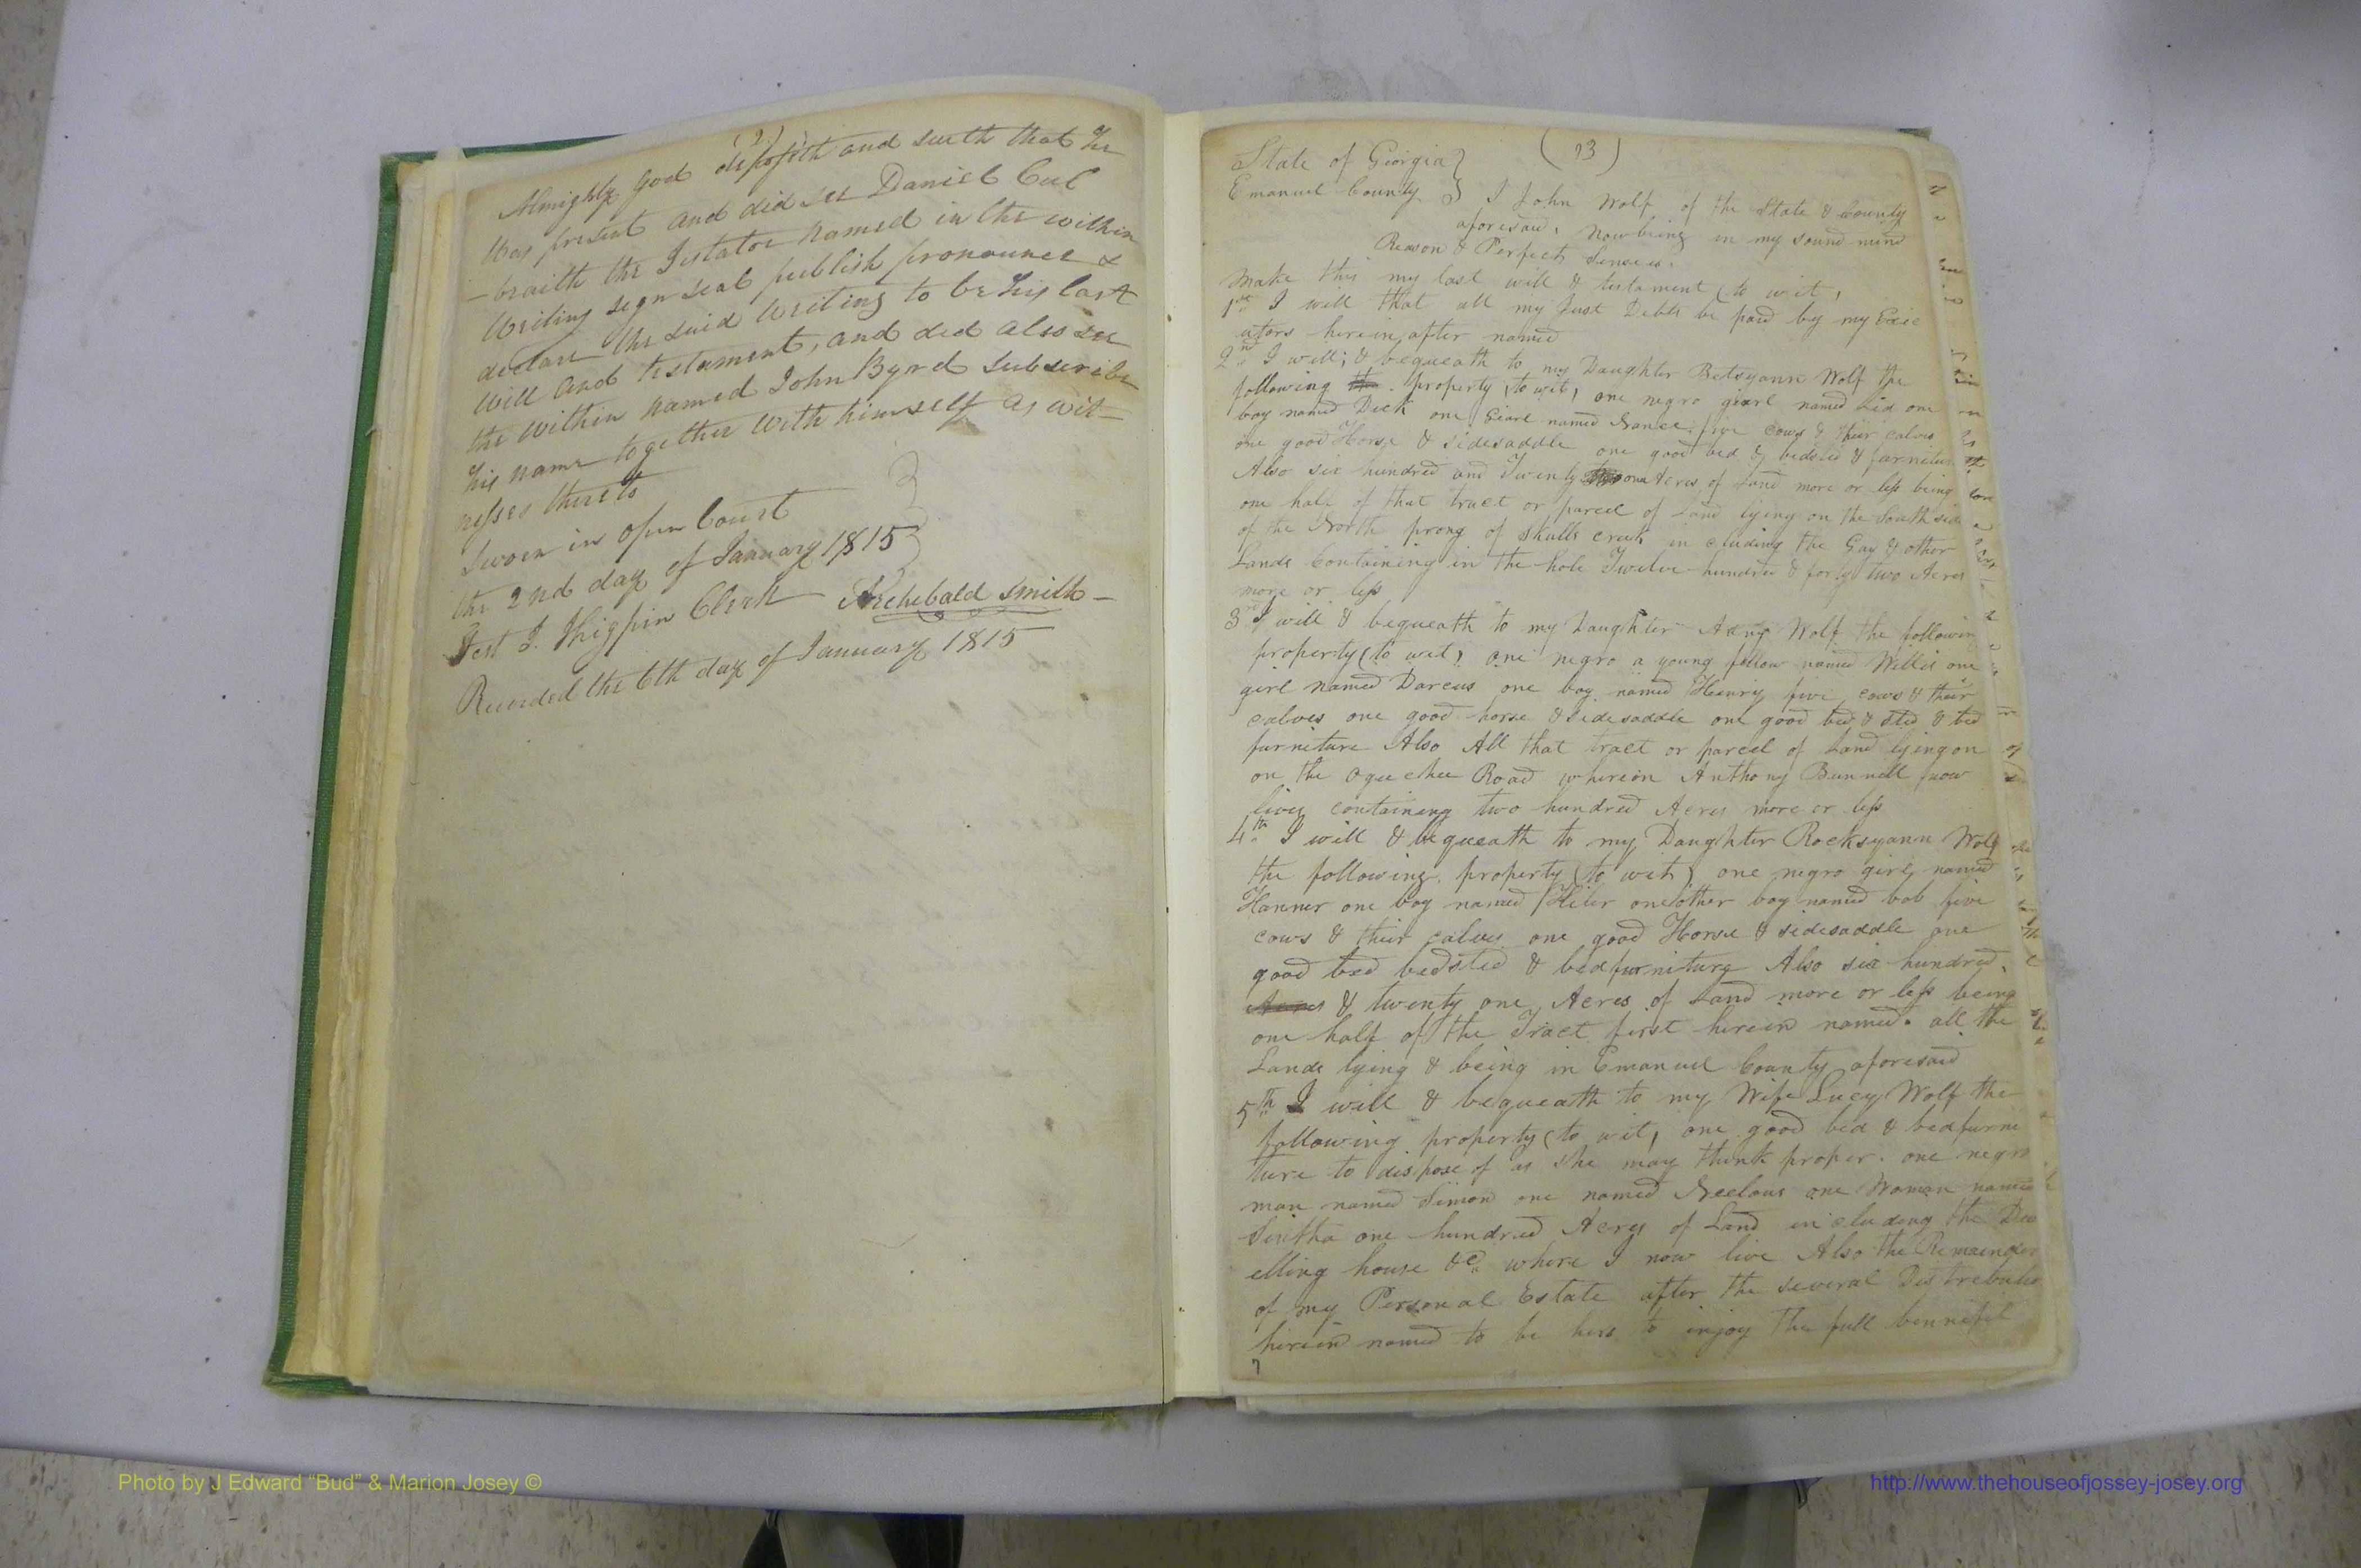 (2)
Almighty God deposeth and saith that he
Was present and did see Daniel Cul
-braith the Testator named in the within
Writing sign seal publish pronounce &
declare the said writing to be his last
will and testament, and did also see
the within named John Byrd subscribe
his name together with himself as wit-
nesses thereto
Sworn in open Court
the 2nd day of January 1815
Test J. Thigpin Clerk Archebald Smith
Recorded the 6th day of January 1815
(13)
State of Georgia
Emanuel County I John Wolf of the State & County
aforesaid, now being in my sound mind
Reason & Perfect Senses.
Make this my last will & testament (to wit,
1st I will that all my Just Debts be paid by my Exec
utors herein after named
2nd I will; & bequeath to my Daughter Betsyann Wolf the
following property (to wit, one negro gearl named Lid one
boy named Dick one Gearl named Nance, five cows & their calves
one good Horse & sidesaddle one good bed & bedsted & furniture
Also six hundred and Twenty one Acres of Land more or less being
one half of that tract or parcel of Land lying on the South side
of the North prong of Skulls creek in cluding the Gay & other
Lands Containing in the hole Twelve hundred & forty two Acres
more or less
3rd I will & bequeath to my Daughter Wolf the following
property (to wit, one negro a young fellow named Willis one
girl named Darcus one boy named Henry five cows & their
calves one good horse & sidesaddle one good bed & sted & bed
furniture Also All that tract or parcel of Land lying on
on the Ogeechee Road wherein Anthony Bunnell now
lives containing two hundred Acres more or less
4th I will & bequeath to my Daughter Rocksyann Wolf
the following property (to wit, one negro girl named
Hanner one boy named one other boy named bob five
cows & their calves one good Horse & sidesaddle one
good bed bedsted & bedfurniture Also six hundred
Acres & twenty one Acres of Land more or less being
one half of the Tract first herein named. all the
Lands lying & being in Emanuel County aforesaid
5th I will & bequeath to my Wife Lucy Wolf the
following property (to wit, one good bed & bedfurne
ture to dispose of as she may think proper. one negro
man named Simon one named one Woman named
Sintha one hundred Acres of Land in cluding the Dw
elling house &c where I now live Also the Remainder
of my Personal Estate after the several Distrebutio
herein named to be hers to injoy the full bennefit
7
Photo by J Edward “Bud” & Marion Josey ©
http://www.thehouseofjossey-josey.org